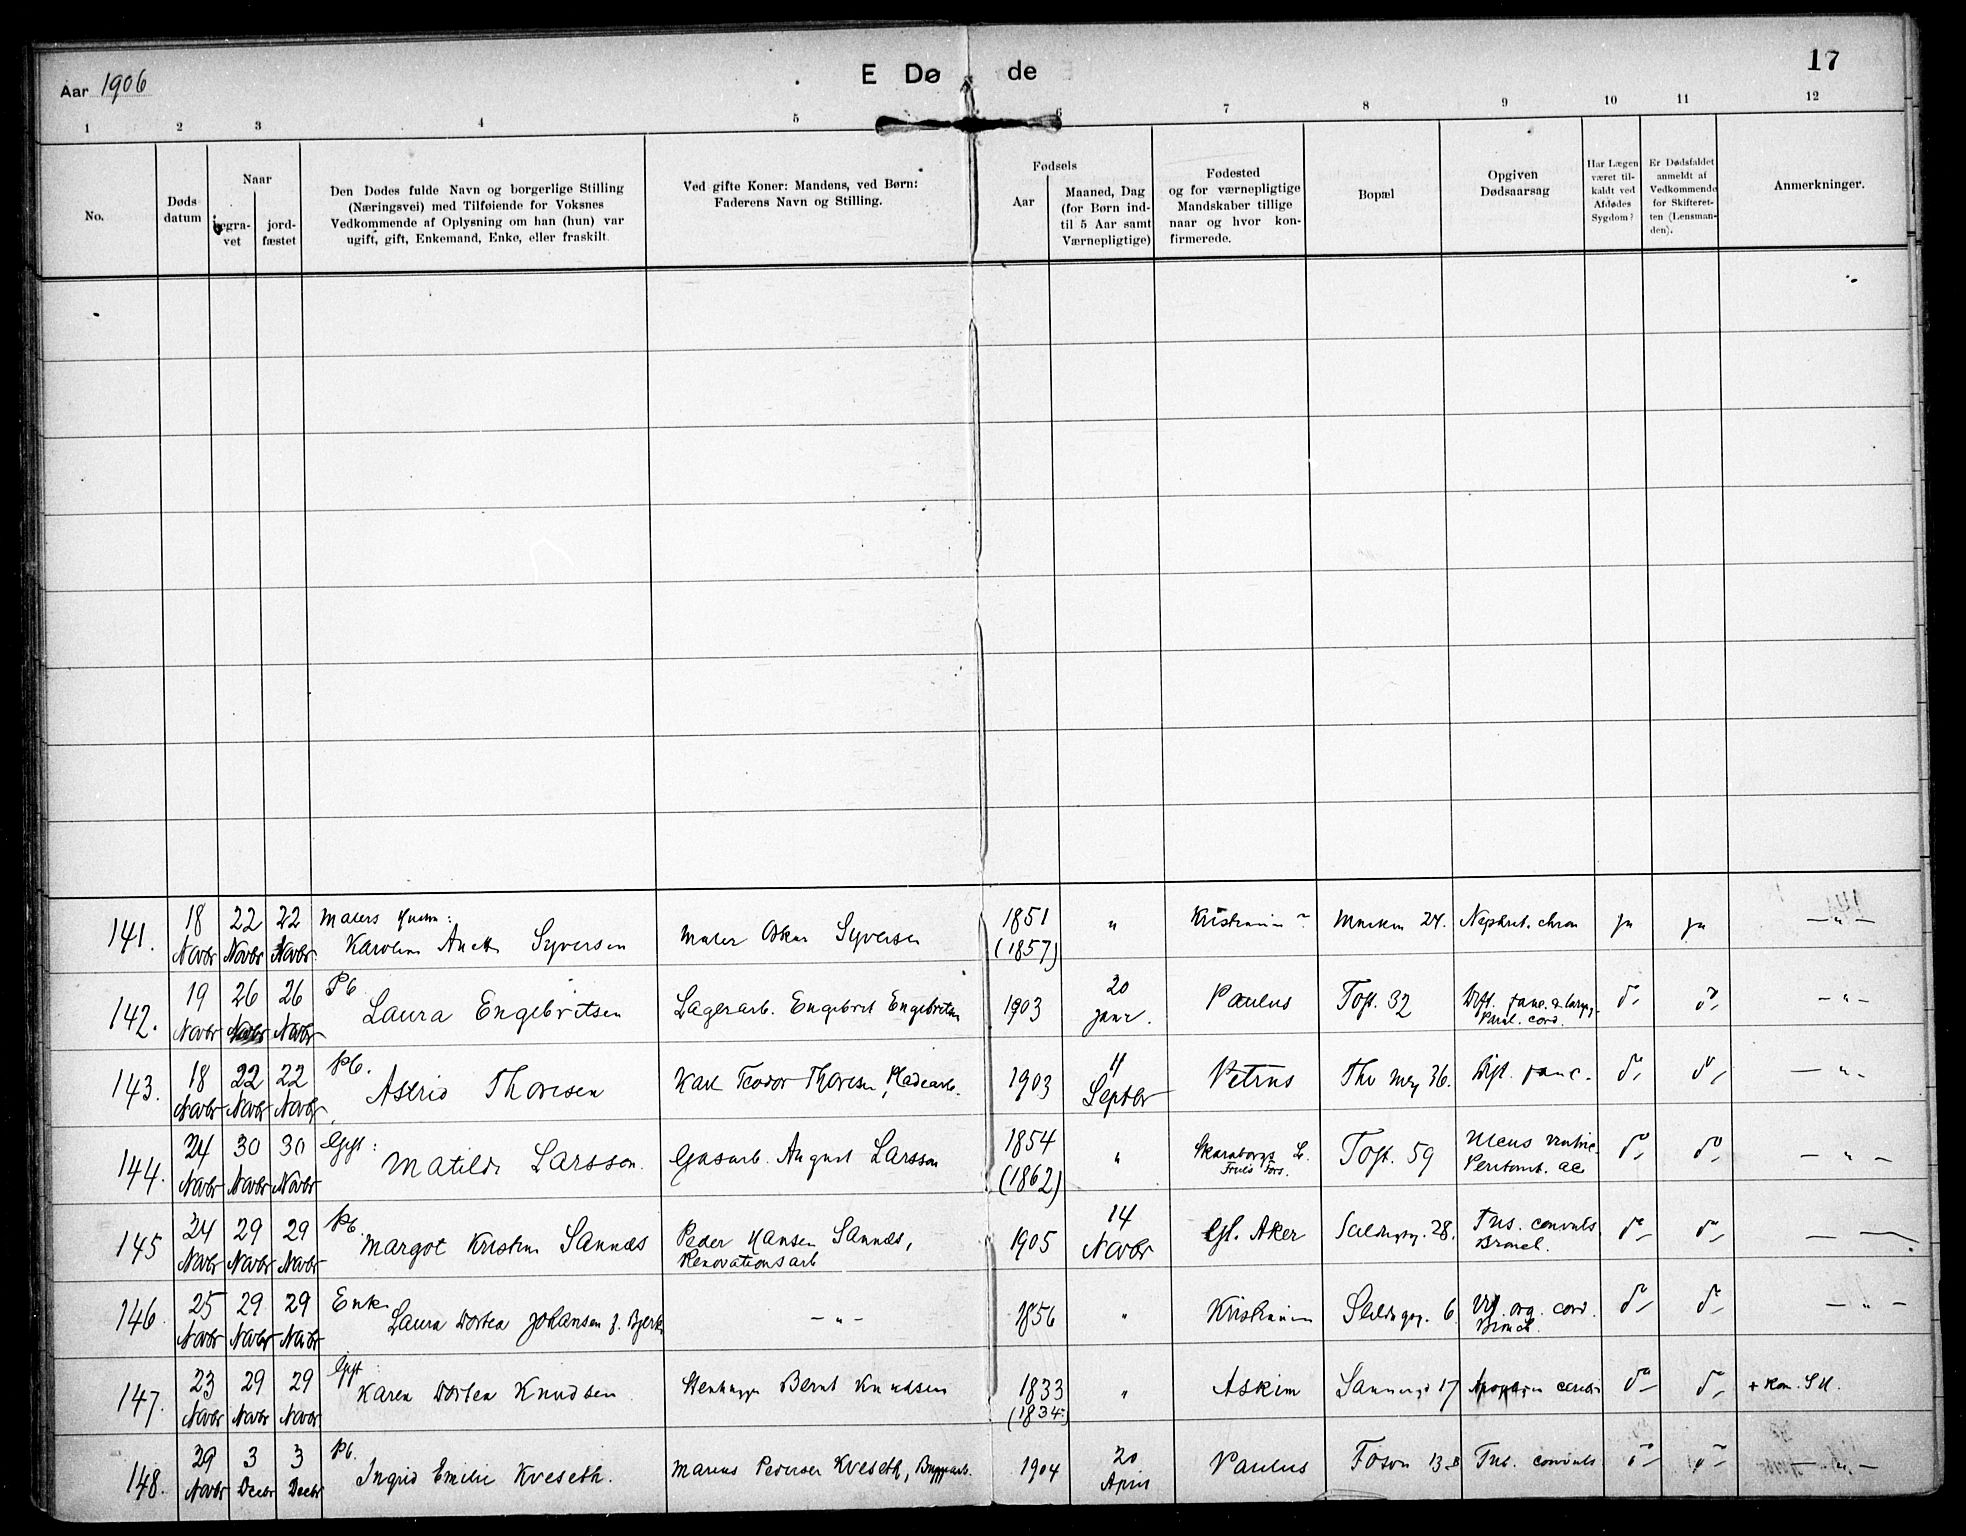 Aar 1906
E Dø de
17
1 2 3 4 5 6 7 8 9 10 11 12
No.
Døds datum
Naar
begra-vet
jord-fæstet
Den Dødes fulde Navn og borgerlige Stilling
(Næringsvei) med Tilføiende for Voksnes
Vedkommende af Oplysning om han (hun) var
ugift, gift, Enkemand, Enke, eller fraskilt.
Ved gifte Koner: Mandens, ved Børn:
Faderens Navn og Stilling.
Fødsels
Aar
Maaned, Dag
(for Børn ind-
til 5 Aar samt
Værnepligtige)
Fødested
og for værnepligtige
Mandskaber tillige
naar og hvor kon-
firmerede.
Bopæl
Opgiven
Dødsaarsag
Har Lægen
været til-
kaldt ved
Afdødes
Sygdom?
Er Dødsfaldet
anmeldt af
Vedkommende
for Skifteret-
ten (Lensman-
den).
Anmerkninger.
141. 18 Novbr 22 Novbr 22 Novbr Malers Hustru: Karoline Anette Syversen Maler Oskar Syversen 1851 (1857) " Kristiania 24. Nephrit. chron ja ja — " —
142. 19 Novbr 26 Novbr 26 Novbr Pb. Laura Engebritsen Lagerarb. Engebret Engebritsen 1903 20 Janr. Paulus Toft. 32 Dift. fauc. & laryng. Paral. cord. do do — " —
143. 18 Novbr 22 Novbr 22 Novbr Pb. Astrid Thoresen Karl Teodor Thoresen, Pladearb. 1903 11 Septbr Petrus Thv Mey 36. Dift. fauc. do do — " —
144. 24 Novbr 30 Novbr 30 Novbr Gift: Matilde Larsson. Gasarb. August Larsson 1854 (1862) " Skaraborgs L. Toft. 59 Ulcus ventric. Peritonit. ac do do — " —
145 24 Novbr 29 Novbr 29 Novbr Pb. Margot Kristine Sannæs Peder Hansen Sannæs, Renovationsarb 1905 14 Novbr Gl. Aker 28. Tus. convuls. Bronch. do do —
146 25 Novbr 29 Novbr 29 Novbr Enke Laura Dortea Johansen f. Bjerke — " — 1856 " Kristiania 6 Vit. org. cord. Bronch. do do — " —
147. 23 Novbr 29 Novbr 29 Novbr Gift Karen Dortea Knudsen Stenhugger Bernt Knudsen 1833 (1834) " Askim Sannergt 17 Apoplexia cerebri do do
148. 29 Novbr 3 Decbr 3 Decbr Pb. Ingrid Emilie Kveseth. Marius Pedersen Kveseth, Bryggearb. 1904 20 April Paulus Fossv 13 B Tus. convuls do do — " —